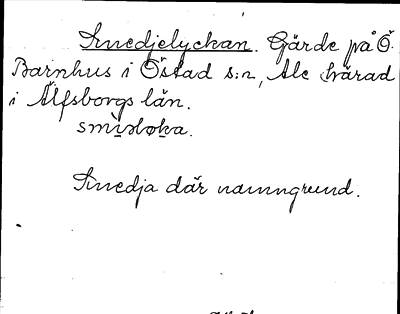 Smedjelyckan. Gärde på Ö.
Barnhus i Östad s:n, Ale härad
i Älfsborgs län.
Smedja där namngrund.